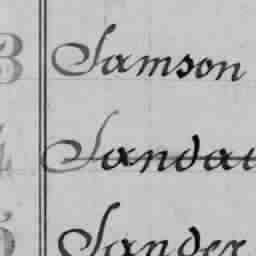 3 Samson
4 Sandat
5 Sander